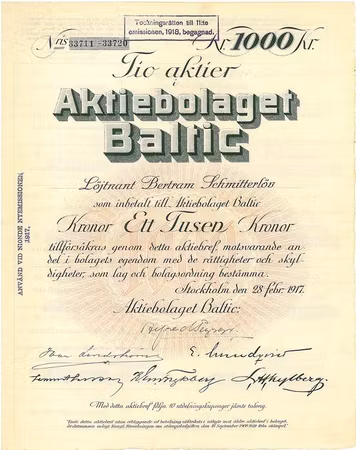 Teckningsrätten till 11te
emissionen, 1918, begagnad.
Nris 33711 - 33720
Kr. 1000 Kr.
Tio aktier
i
Aktiebolaget
Baltic
Löjtnant Bertram Schmitterlöw
som inbetalt till Aktiebolaget Baltic
Kronor Ett Tusen Kronor
tillförsäkras genom detta aktiebref motsvarande an
del i bolagets egendom med de rättigheter och skyl
digheter, som lag och bolagsordning bestämma.
Stockholm den 28 febr. 1917.
Aktiebolaget Baltic:
Med detta aktiebref följa 10 utdelningskuponger jämte talong.
ANVÄND VID NIONDE NYEMISSIONEN
1917.